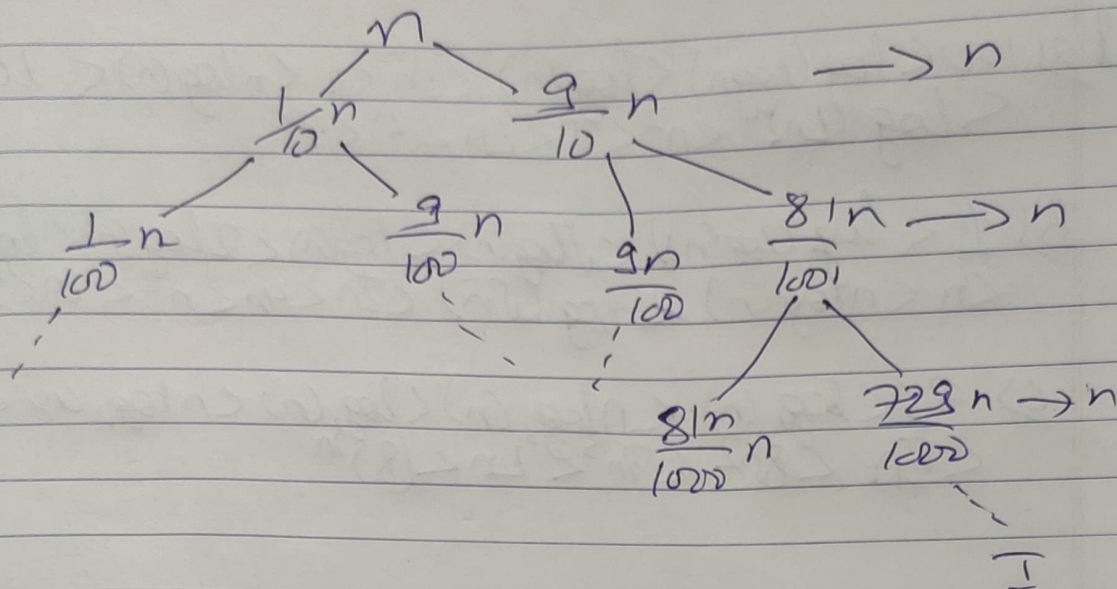 n
1/10 n 9/10 n → n
1/100 n 9/100 n 9n/100 81n/100 → n
81n/1000 n 729n/1000 → n